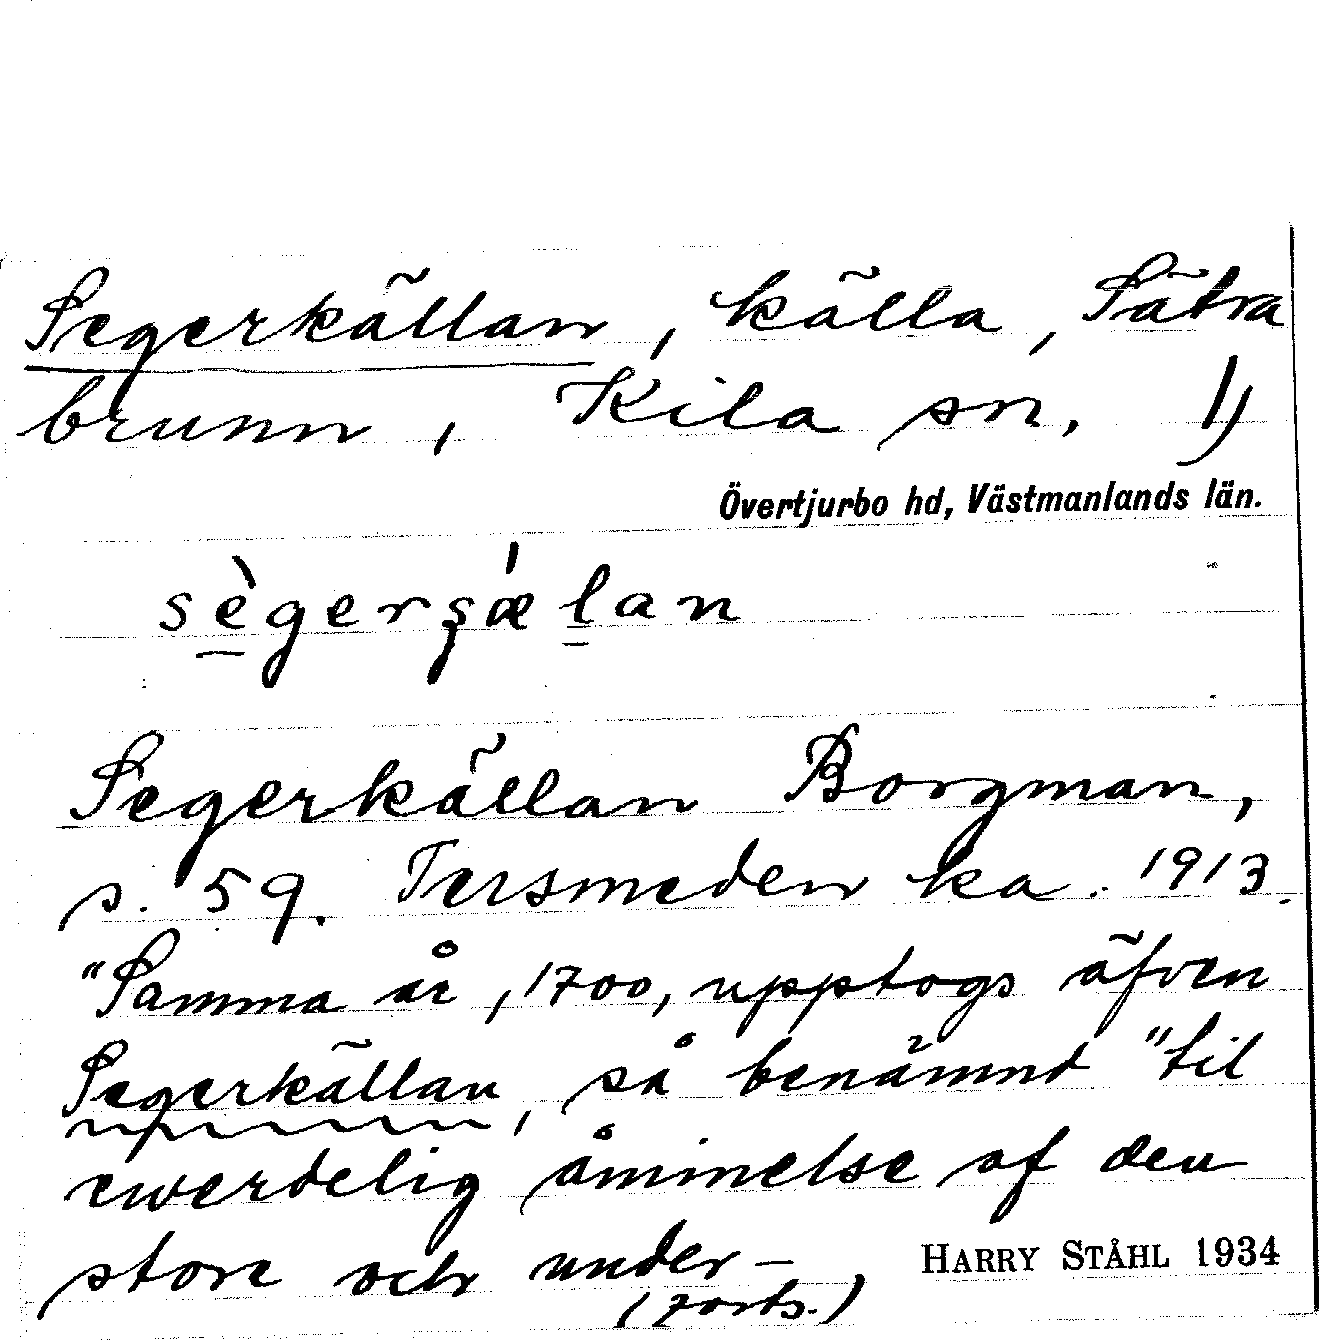 Segerkällan, källa, Sätra
brunn, Kila sn, 1)
Övertjurbo hd, Västmanlands län.
sègerşǽlan
Segerkällan Borgman,
s. 59. Tersmeden ka. 1913.
"Samma år, 1700, upptogs äfven
Segerkällan, så benämnd "til
ewerdelig åminnelse af den
store och under-
(forts.)
HARRY STÅHL 1934